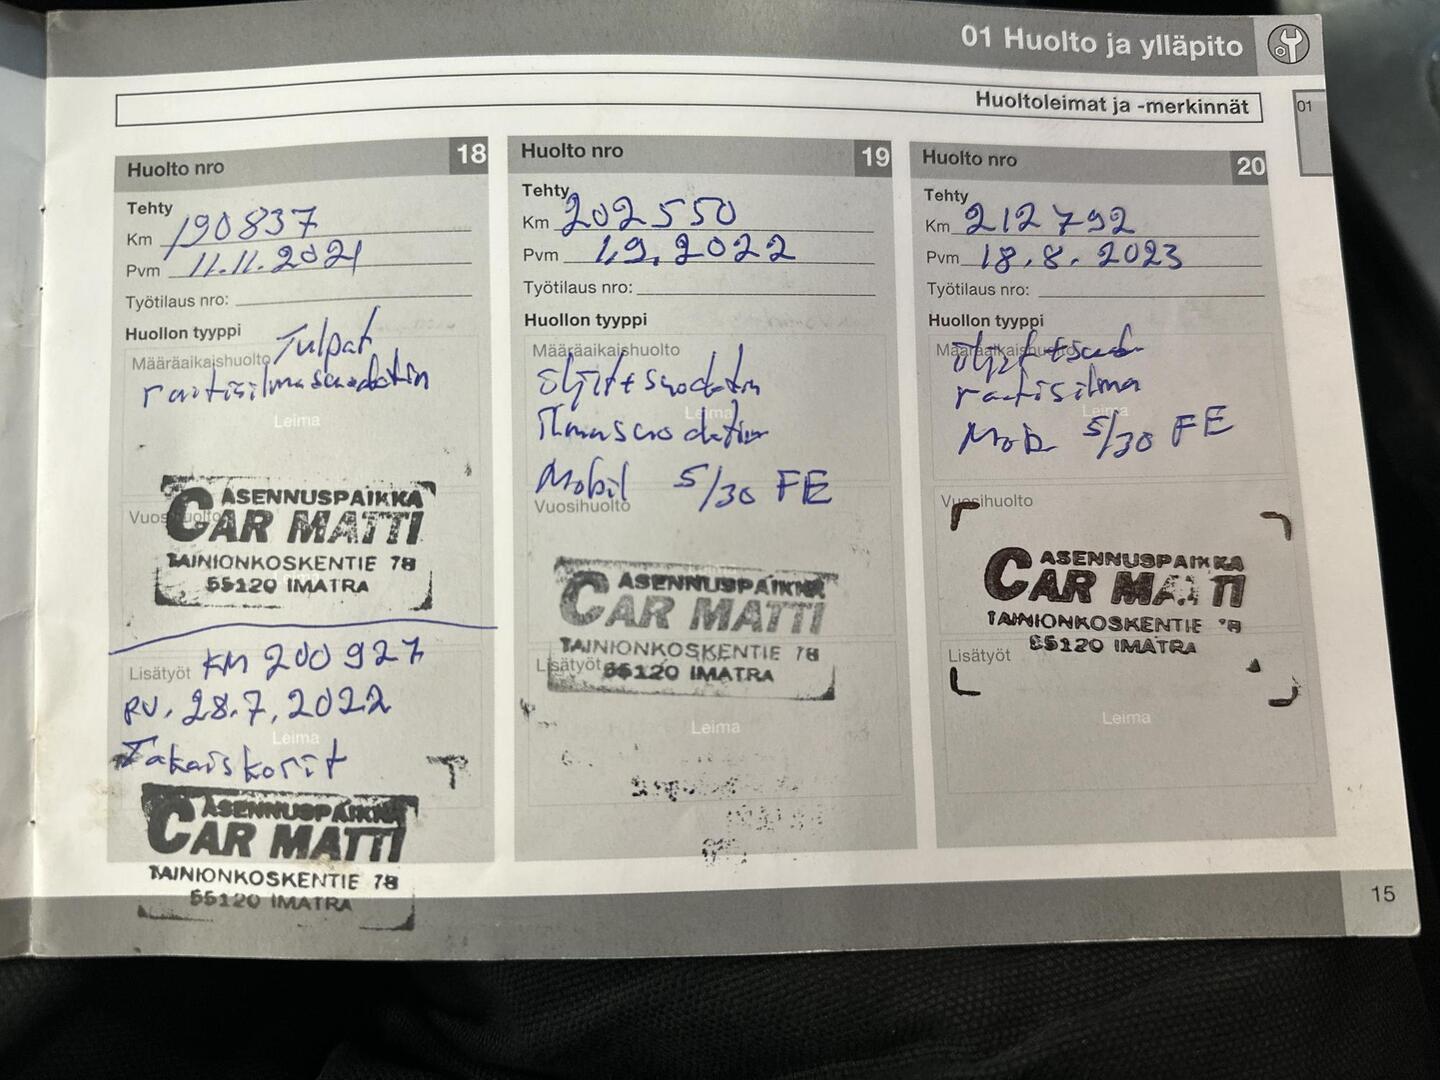 01 Huolto ja ylläpito
Huoltoleimat ja -merkinnät
01
Huolto nro 18
Tehty
Km 190837
Pvm 11.11.2021
Työtilaus nro:
Huollon tyyppi
Tulpat
Määräaikaishuolto
raitisilmasuodatin
Leima
Vuosihuolto
ASENNUSPAIKKA
CAR MATTI
TAINIONKOSKENTIE 78
55120 IMATRA
Lisätyöt KM 200927
PV. 28.7.2022
Leima
Takaiskarit
ASENNUSPAIKKA
CAR MATTI
TAINIONKOSKENTIE 78
55120 IMATRA
Huolto nro 19
Tehty
Km 202550
Pvm 1.9.2022
Työtilaus nro:
Huollon tyyppi
Määräaikaishuolto
öljyt+suodatin
Leima
Ilmasuodatin
Mobil 5/30 FE
Vuosihuolto
ASENNUSPAIKKA
CAR MATTI
TAINIONKOSKENTIE 78
Lisätyöt
55120 IMATRA
Leima
Huolto nro 20
Tehty
Km 212792
Pvm 18.8.2023
Työtilaus nro:
Huollon tyyppi
Määräaikaishuolto
raitisilma
Leima
5/30 FE
Vuosihuolto
ASENNUSPAIKKA
CAR MATTI
TAINIONKOSKENTIE 78
55120 IMATRA
Lisätyöt
Leima
15